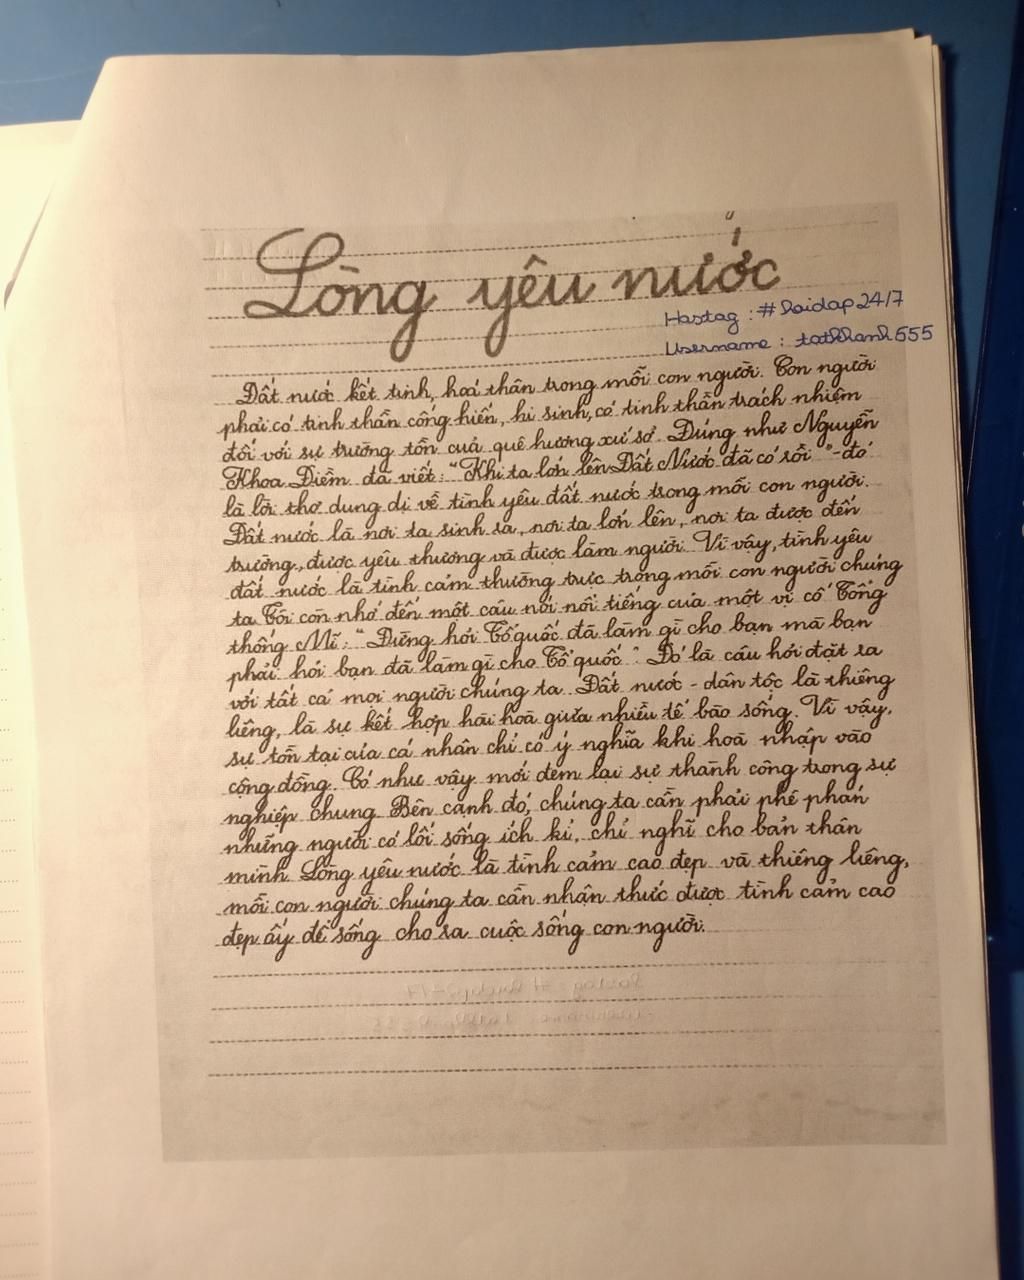 Lòng yêu nước
Hastag : #hoidap24/7
Username : tatkhanh555
Đất nước kết tinh, hoá thân trong mỗi con người. Con người
phải có tinh thần cống hiến, hi sinh, có tinh thần trách nhiệm
đối với sự trường tồn của quê hương xứ sở. Đúng như Nguyễn
Khoa Điềm đã viết : "Khi ta lớn lên Đất Nước đã có rồi "- đó
là lời thơ dung dị về tình yêu đất nước trong mỗi con người.
Đất nước là nơi ta sinh ra, nơi ta lớn lên, nơi ta được đến
trường, được yêu thương và được làm người. Vì vậy, tình yêu
đất nước là tình cảm thường trực trong mỗi con người chúng
ta. Tôi còn nhớ đến một câu nói nổi tiếng của một vị cố Tổng
thống Mĩ : "Đừng hỏi Tổ quốc đã làm gì cho bạn mà bạn
phải hỏi bạn đã làm gì cho Tổ quốc ". Đó là câu hỏi đặt ra
với tất cả mọi người chúng ta. Đất nước - dân tộc là thiêng
liêng, là sự kết hợp hài hoà giữa nhiều tế bào sống. Vì vậy,
sự tồn tại của cá nhân chỉ có ý nghĩa khi hoà nhập vào
cộng đồng. Có như vậy mới đem lại sự thành công trong sự
nghiệp chung. Bên cạnh đó, chúng ta cần phải phê phán
những người có lối sống ích kỉ, chỉ nghĩ cho bản thân
mình. Lòng yêu nước là tình cảm cao đẹp và thiêng liêng,
mỗi con người chúng ta cần nhận thức được tình cảm cao
đẹp ấy để sống cho ra cuộc sống con người.